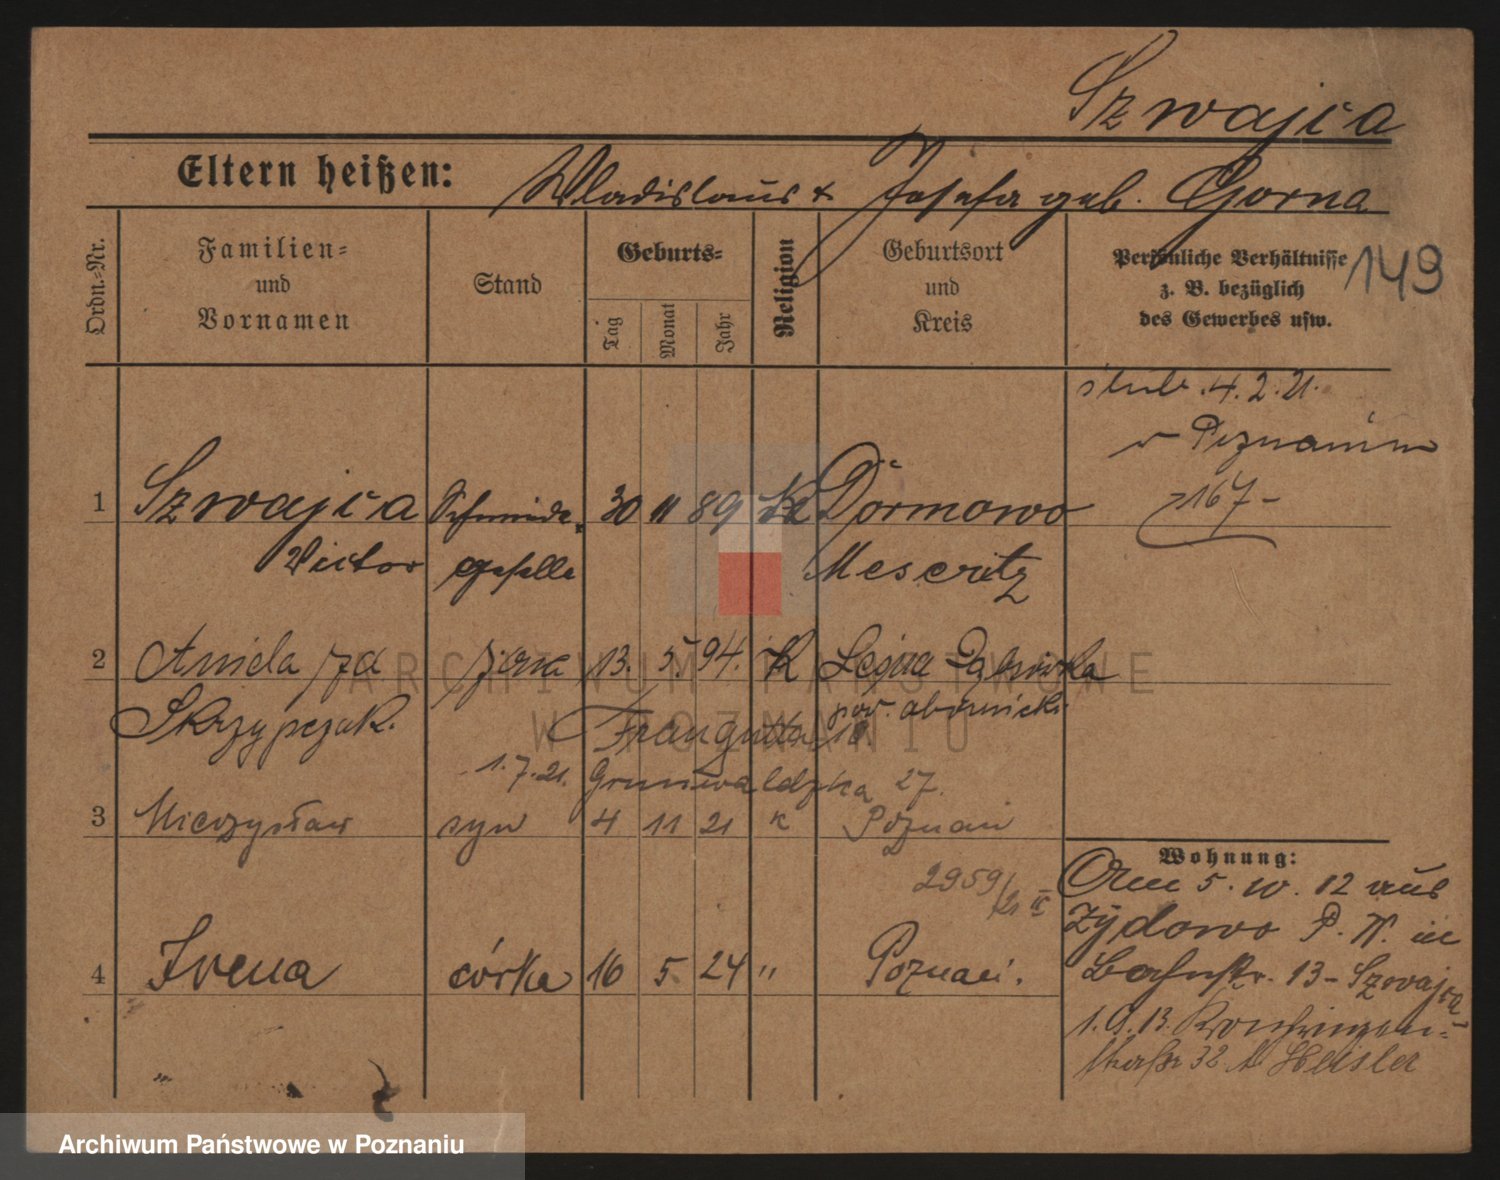 Szwajca
Eltern heißen: Wladislaus & Josefa geb. Gorna
Ordn.-Nr.
Familien-
und
Vornamen
Stand
Geburts-
Tag
Monat
Jahr
Religion
Geburtsort
und
Kreis
Persönliche Verhältnisse
z. B. bezüglich
des Gewerbes usw.
149
ślub 4.2.21.
w Poznaniu
167-
1 Szwajca Schmiede- 30 11 89 K Dormowo
Victor geselle Meseritz
2 Aniela żona 13. 5. 94. K Dąbrówka
Skrzypczak. pow. obornicki
18
1.7.21. Grunwaldzka 27.
3 Mieczysław syn 4 11 21 K Poznań
2959/21 IV
4 Irena córka 16 5 24 " Poznań.
Wohnung:
5. 10. 12 aus
Żydowo P. W. in
Bahnstr. 13 - Szwajca
1. 9. 13. Kronprinzen-
straße 32 b. Heisler
ARCHIWUM PAŃSTWOWE
W POZNANIU
Archiwum Państwowe w Poznaniu